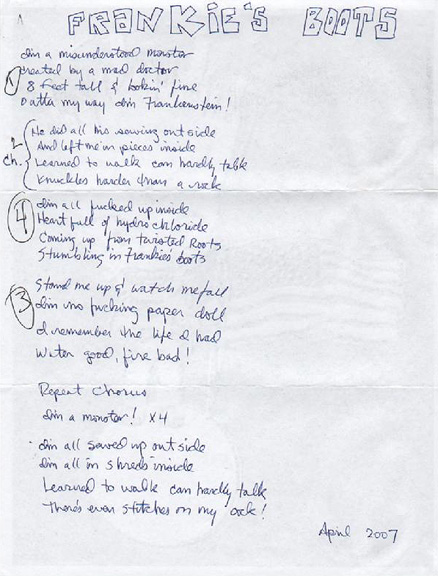 FRANKIE'S BOOTS
I'm a misunderstood monster
created by a mad doctor
1
8 feet tall & lookin' fine
Outta my way I'm Frankenstein!
He did all his sewing outside
2
And left me in pieces inside
Ch.
Learned to walk can hardly talk
Knuckles harder than a rock
4
I'm all fucked up inside
Heart full of hydrochloride
Coming up from twisted Roots
Stumbling in Frankie's boots
3
Stand me up & watch me fall
I'm no fucking paper doll
I remember the life I had
Water good, fire bad!
Repeat Chorus
I'm a monster! x4
I'm all sewed up outside
I'm all in shreds inside
Learned to walk can hardly talk
There's even stitches on my cock!
April 2007